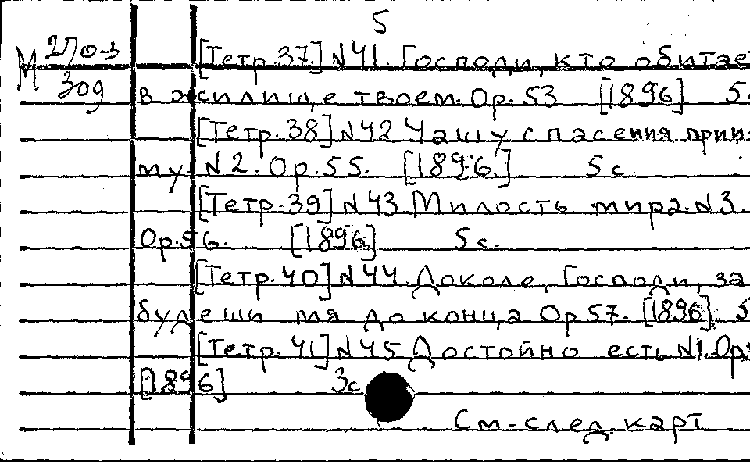 5
М 270-3 [Тетр.37] N41. Господи, кто обитае
309 в жилище твоем. Ор.53 [1896] 5.
[Тетр.38] N42 Чашу спасения прии
му. N2. Ор.55. [1896.] 5с
[Тетр.39] N43. Милость мира. N3.
Ор.56. [1896] 5с.
[Тетр.40] N44. Доколе, Господи, за
будеши мя до конца Ор57. [1896] 5
[Тетр.41] N45 Достойно есть N1. Ор
[1896] 3с
См. след. карт